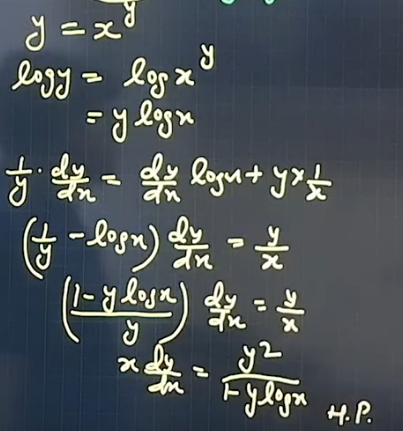 y = x^y
log y = log x^y
= y log x
1/y · dy/dx = dy/dx log x + y × 1/x
(1/y - log x) dy/dx = y/x
((1 - y log x)/y) dy/dx = y/x
x dy/dx = y2/(1 - y log x) H.P.